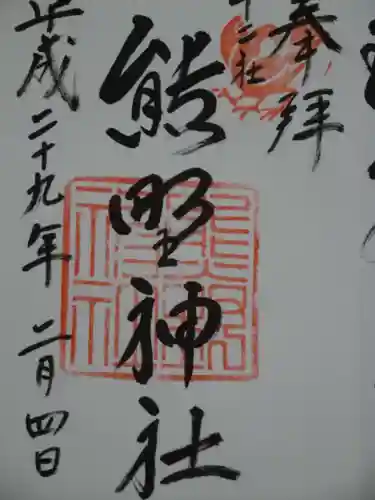 奉拝
十二社
熊野神社
平成二十九年二月四日